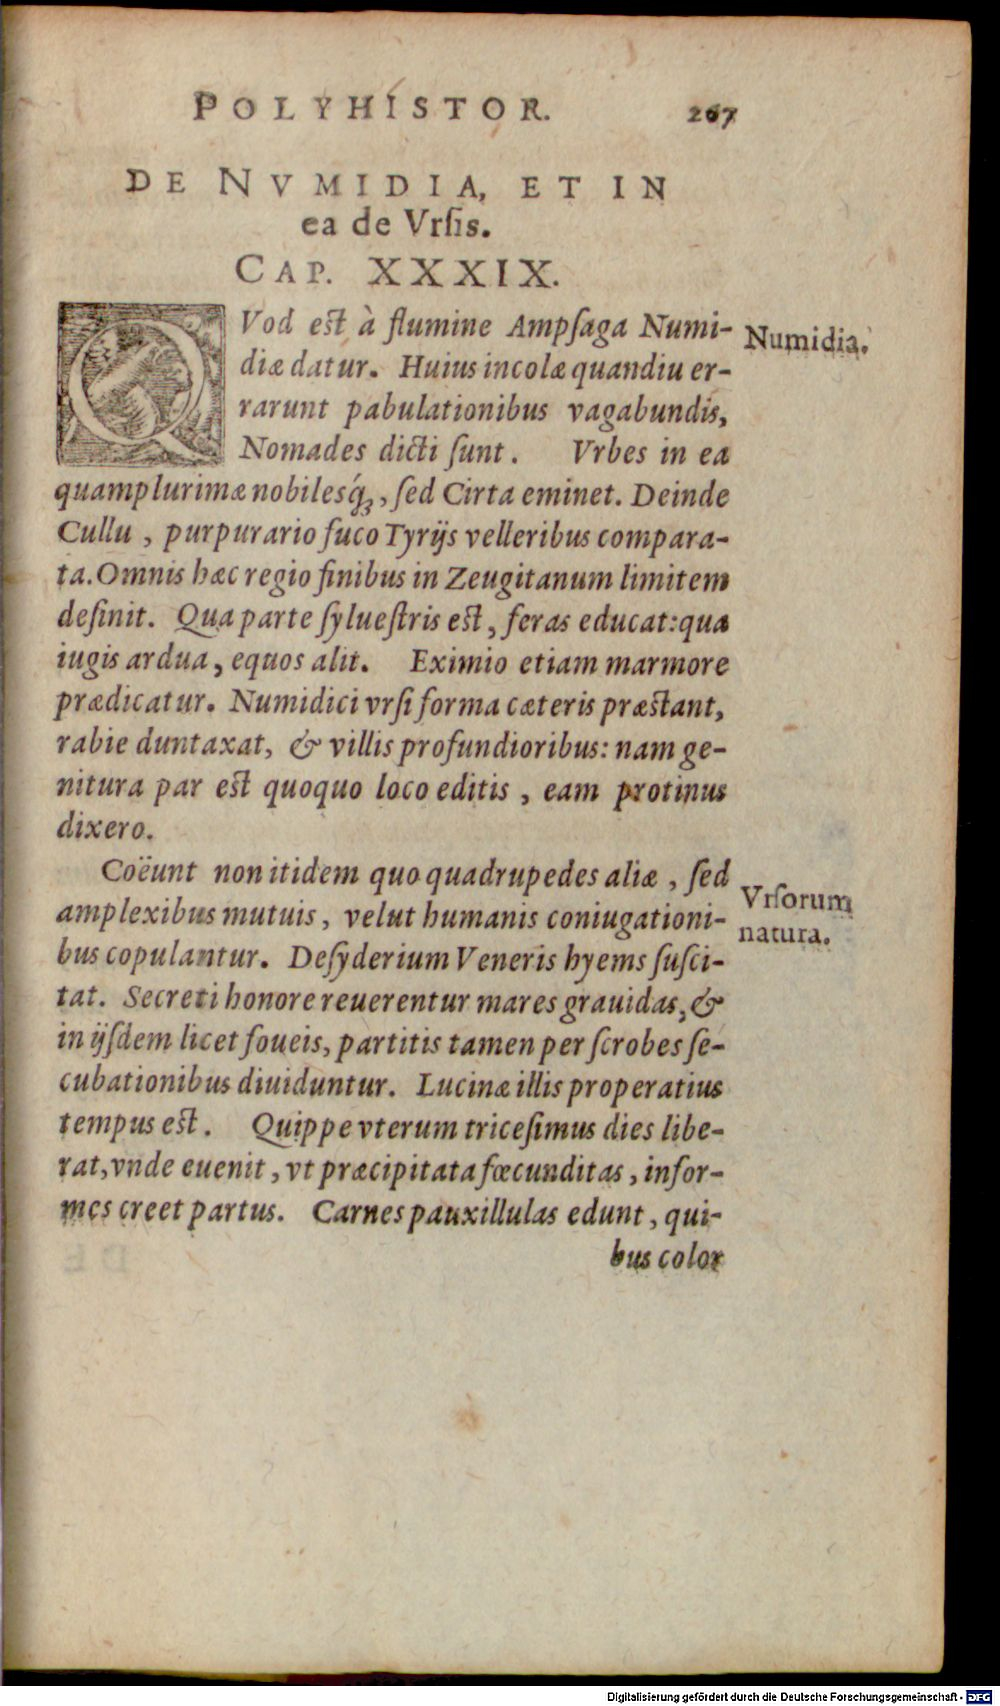 POLYHISTOR. 267
DE NVMIDIA, ET IN
ea de Vrſis.
CAP. XXXIX.
QVod est à flumine Ampſaga Numi-
diæ datur. Huius incolæ quandiu er-
rarunt pabulationibus vagabundis,
Nomades dicti ſunt. Vrbes in ea
quamplurimæ nobilesq́ꝫ, ſed Cirta eminet. Deinde
Cullu, purpurario fuco Tyrijs velleribus compara-
ta. Omnis hæc regio finibus in Zeugitanum limitem
deſinit. Qua parte ſylueſtris est, feras educat: qua
iugis ardua, equos alit. Eximio etiam marmore
prædicatur. Numidici vrſi forma cæteris præstant,
rabie duntaxat, & villis profundioribus: nam ge-
nitura par est quoquo loco editis, eam protinus
dixero.
Numidia.
Coëunt non itidem quo quadrupedes aliæ, ſed
amplexibus mutuis, velut humanis coniugationi-
bus copulantur. Deſyderium Veneris hyems ſuſci-
tat. Secreti honore reuerentur mares grauidas, &
in ijſdem licet foueis, partitis tamen per ſcrobes ſe-
cubationibus diuiduntur. Lucinæ illis properatius
tempus est. Quippe vterum triceſimus dies libe-
rat, vnde euenit, vt præcipitata fœcunditas, infor-
mes creet partus. Carnes pauxillulas edunt, qui-
bus color
Vrſorum
natura.
Digitalisierung gefördert durch die Deutsche Forschungsgemeinschaft - DFG